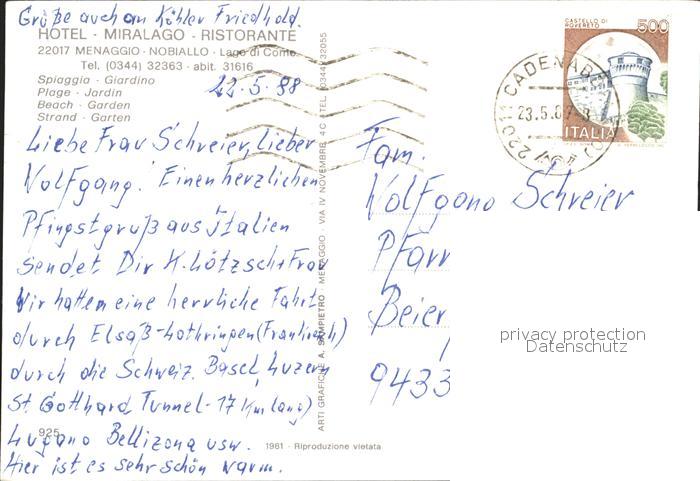 Grüße auch an Köhler Friedhold.
HOTEL - MIRALAGO - RISTORANTE
22017 MENAGGIO - NOBIALLO - Lago di Como
Tel. (0344) 32363 - abit. 31616
Spiaggia - Giardino
Plage - Jardin
Beach - Garden
Strand - Garten
22.5.88
Liebe Frau Schreier, lieber
Wolfgang! Einen herzlichen
Pfingstgruß aus Italien
sendet Dir K. Lötzsch + Frau
Wir hatten eine herrliche Fahrt
durch Elsaß-Lothringen (Frankreich)
durch die Schweiz. Basel, Luzern
St. Gotthard Tunnel - 17 km lang)
Lugano Bellizona usw.
Hier ist es sehr schön warm.
925
1981 - Riproduzione vietata
ARTI GRAFICHE A. SAMPIETRO - MENAGGIO - VIA IV NOVEMBRE, 4C TEL. (0344) 32055
CASTELLO DI
ROVERETO
500
ITALIA
22011 CADENABBIA (CO)
23.5.8
Fam.
Wolfgang Schreier
Pfarr
Beier
9433
privacy protection
Datenschutz